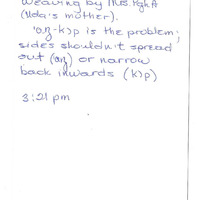 weaving by Mrs. Pghá
(Uda's mother).
'aŋ-k)p is the problem;
sides shouldn't spread
out (aŋ) or narrow
back inwards (k)p)
3:21 pm